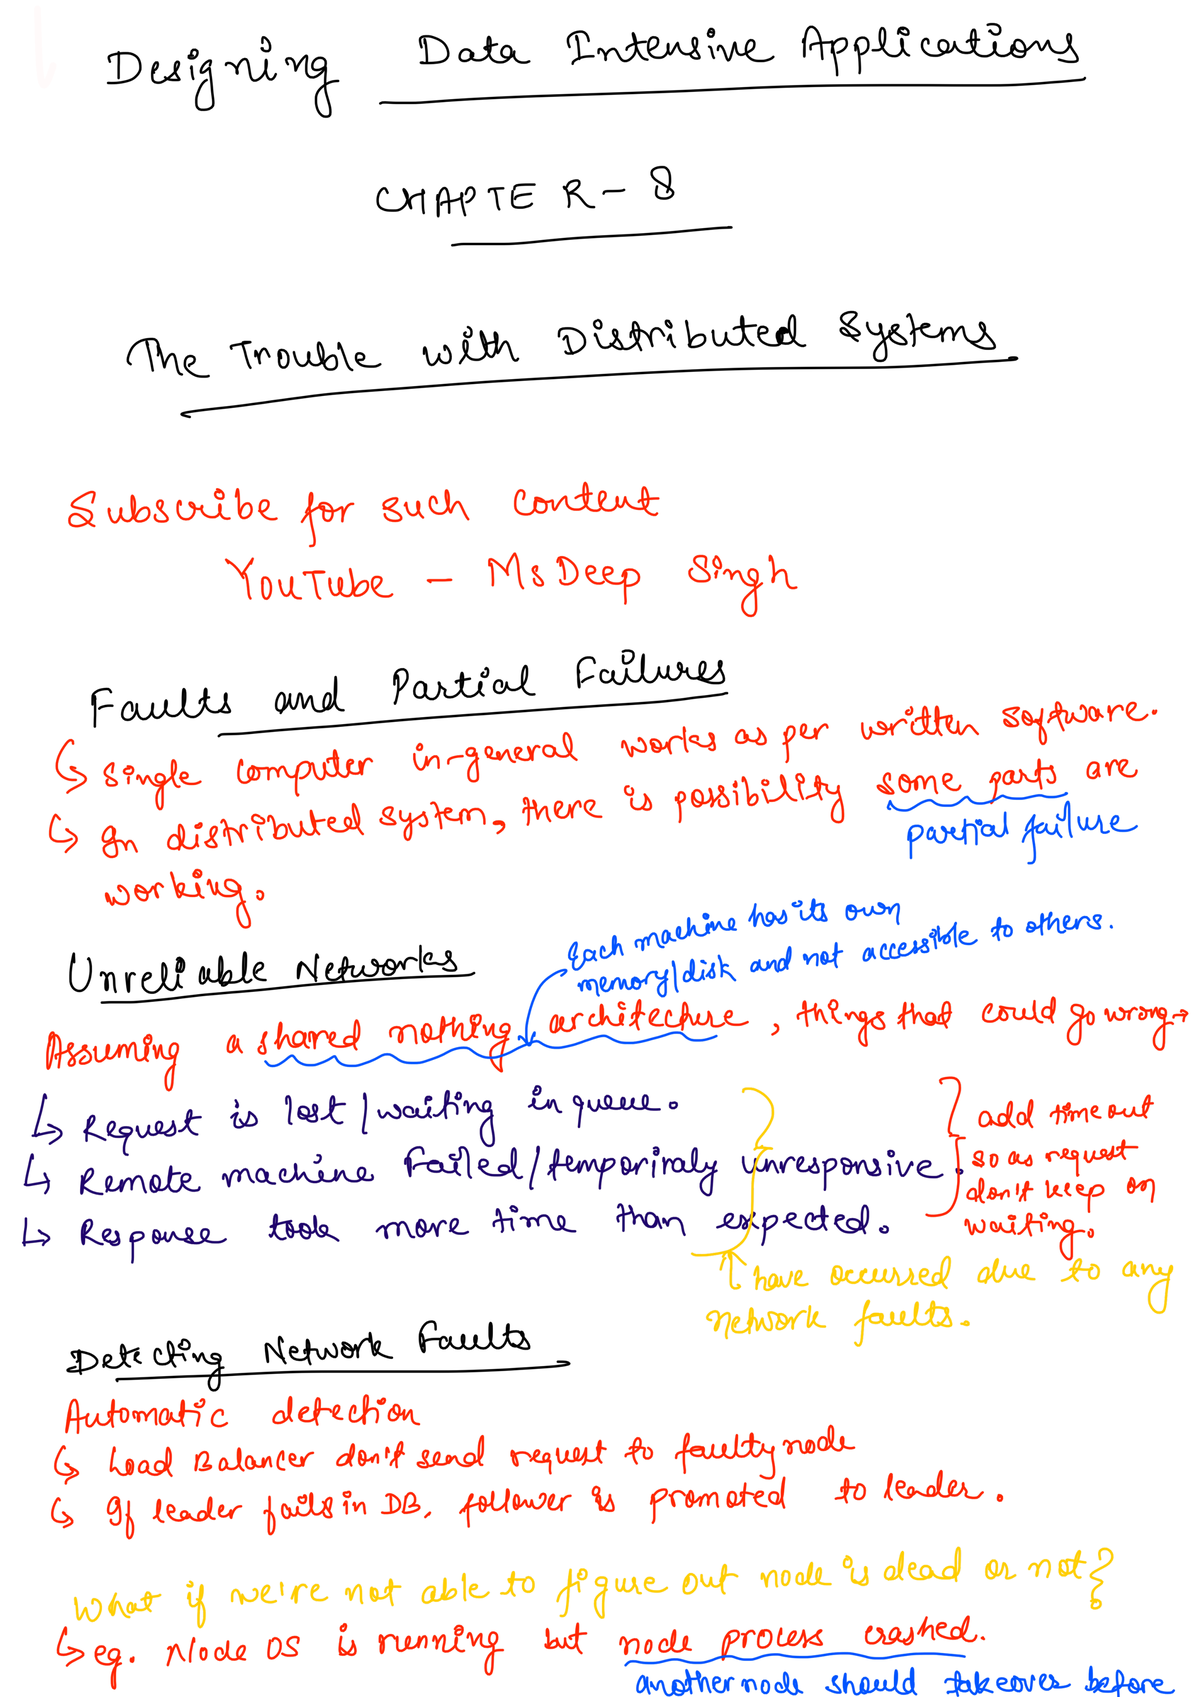 Designing Data Intensive Applications
CHAPTER - 8
The Trouble with Distributed Systems
Subscribe for such content
YouTube - MsDeep Singh
Faults and Partial Failures
↳ Single computer in-general works as per written software.
↳ In distributed system, there is possibility some parts are
partial failure
working.
Each machine has its own
memory/disk and not accessible to others.
Unreliable Networks
Assuming a shared nothing architecture, things that could go wrong →
↳ Request is lost/waiting in queue.
↳ Remote machine failed/temporiraly unresponsive.
↳ Response took more time than expected.
add timeout
so as request
don't keep on
waiting.
↑ have occurred due to any
network faults.
Detecting Network Faults
Automatic detection
↳ Load Balancer don't send request to faulty node
↳ If leader fails in DB, follower is promoted to leader.
What if we're not able to figure out node is dead or not?
↳ eg. Node OS is running but node process crashed.
another node should takeover before